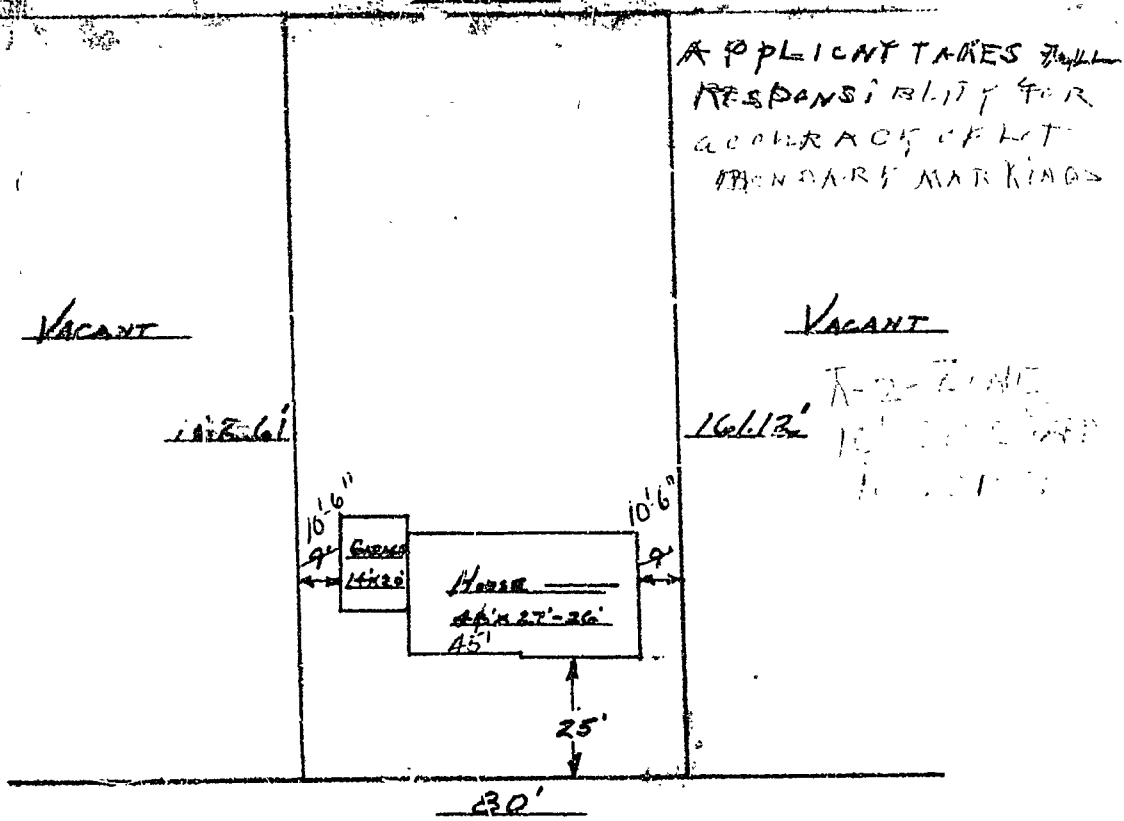 APPLICNT TAKES Full
RESPONSiBLITY FOR
ACCURACY OF LOT
BONDARY MARKINGS
VACANT
VACANT
R-2-ZONE
161.13'
10'-6"
10'6"
9'
GARAGE
14'X20'
HOUSE
27'-26'
45'
9'
25'
80'